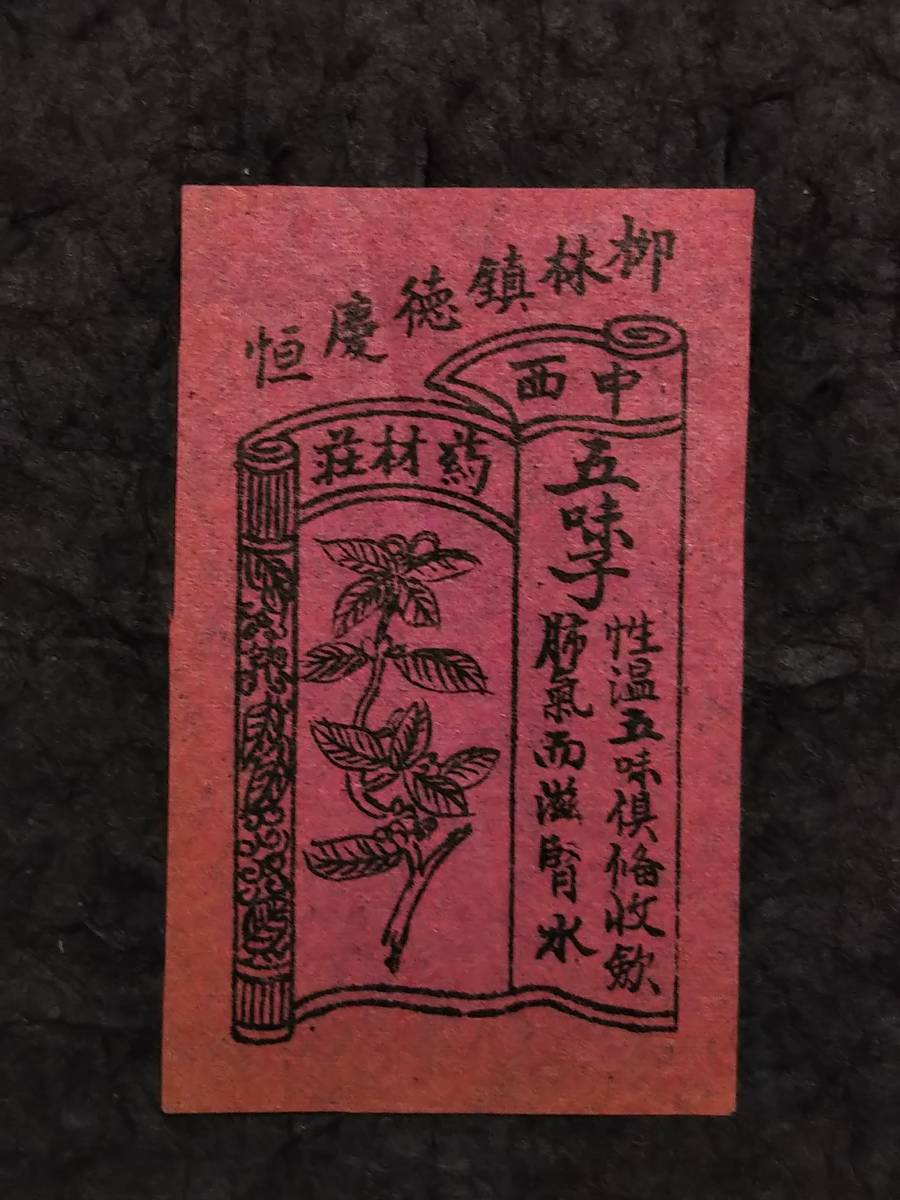 柳林鎮德慶恒
中西
葯材莊
五味子
性温五味俱俻收歛
肺氣而滋腎水